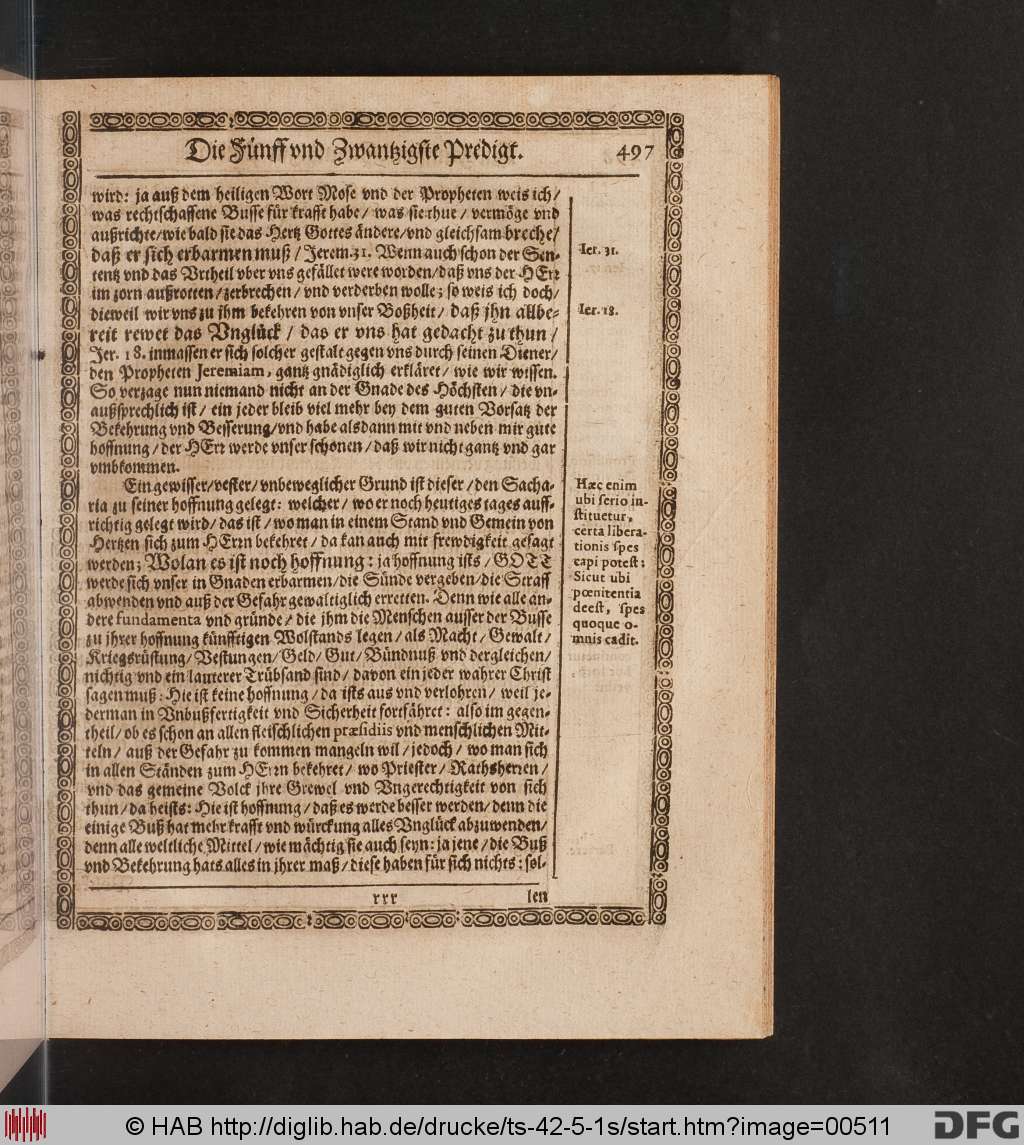 Die Fünff vnd Zwantzigste Predigt. 497
wird: ja auß dem heiligen Wort Mose vnd der Propheten weis ich/
was rechtschaffene Busse für krafft habe/ was sie thue/ vermöge vnd
außrichte/ wie bald sie das Hertz Gottes ändere/ vnd gleichsam breche/
daß er sich erbarmen muß/ Jerem. 31. Wenn auch schon der Sen-
tentz vnd das Vrtheil vber vns gefället were worden/ daß vns der HErr
im zorn außrotten/ zerbrechen/ vnd verderben wolle; so weis ich doch/
dieweil wir vns zu jhm bekehren von vnser Boßheit/ daß jhn allbe-
reit rewet das Vnglück/ das er vns hat gedacht zu thun/
Jer. 18. inmassen er sich solcher gestalt gegen vns durch seinen Diener/
den Propheten Jeremiam, gantz gnädiglich erkläret/ wie wir wissen.
So verzage nun niemand nicht an der Gnade des Höchsten/ die vn-
außsprechlich ist/ ein jeder bleib viel mehr bey dem guten Vorsatz der
Bekehrung vnd Besserung/ vnd habe alsdann mit vnd neben mir gute
hoffnung/ der HErr werde vnser schonen/ daß wir nicht gantz vnd gar
vmbkommen.
Ein gewisser/ vester/ vnbeweglicher Grund ist dieser/ den Sacha-
ria zu seiner hoffnung gelegt: welcher/ wo er noch heutiges tages auff-
richtig gelegt wird/ das ist/ wo man in einem Stand vnd Gemein von
Hertzen sich zum HErrn bekehret/ da kan auch mit frewdigkeit gesagt
werden; Wolan es ist noch hoffnung: ja hoffnung ists/ GOTT
werde sich vnser in Gnaden erbarmen/ die Sünde vergeben/ die Straff
abwenden vnd auß der Gefahr gewaltiglich erretten. Denn wie alle an-
dere fundamenta vnd gründe/ die jhm die Menschen ausser der Busse
zu jhrer hoffnung künfftigen Wolstands legen/ als Macht/ Gewalt/
Kriegsrüstung/ Vestungen/ Geld/ Gut/ Bündnuß vnd dergleichen/
nichtig vnd ein lauterer Trübsand sind/ davon ein jeder wahrer Christ
sagen muß: Hie ist keine hoffnung/ da ists aus vnd verlohren/ weil je-
derman in Vnbußfertigkeit vnd Sicherheit fortfähret: also im gegen-
theil/ ob es schon an allen fleischlichen præsidiis vnd menschlichen Mit-
teln/ auß der Gefahr zu kommen mangeln wil/ jedoch/ wo man sich
in allen Ständen zum HErrn bekehret/ wo Priester/ Rathsherren/
vnd das gemeine Volck jhre Grewel vnd Vngerechtigkeit von sich
thun/ da heists: Hie ist hoffnung/ daß es werde besser werden/ denn die
einige Buß hat mehr krafft vnd würckung alles Vnglück abzuwenden/
denn alle weltliche Mittel/ wie mächtig sie auch seyn: ja jene/ die Buß
vnd Bekehrung hats alles in jhrer maß/ diese haben für sich nichts: sol-
rrr len
Ier. 31.
Ier. 18.
Hæc enim
ubi serio in-
stituetur,
certa libera-
tionis spes
capi potest:
Sicut ubi
pœnitentia
deest, spes
quoque o-
mnis cadit.
© HAB http://diglib.hab.de/drucke/ts-42-5-1s/start.htm?image=00511
DFG